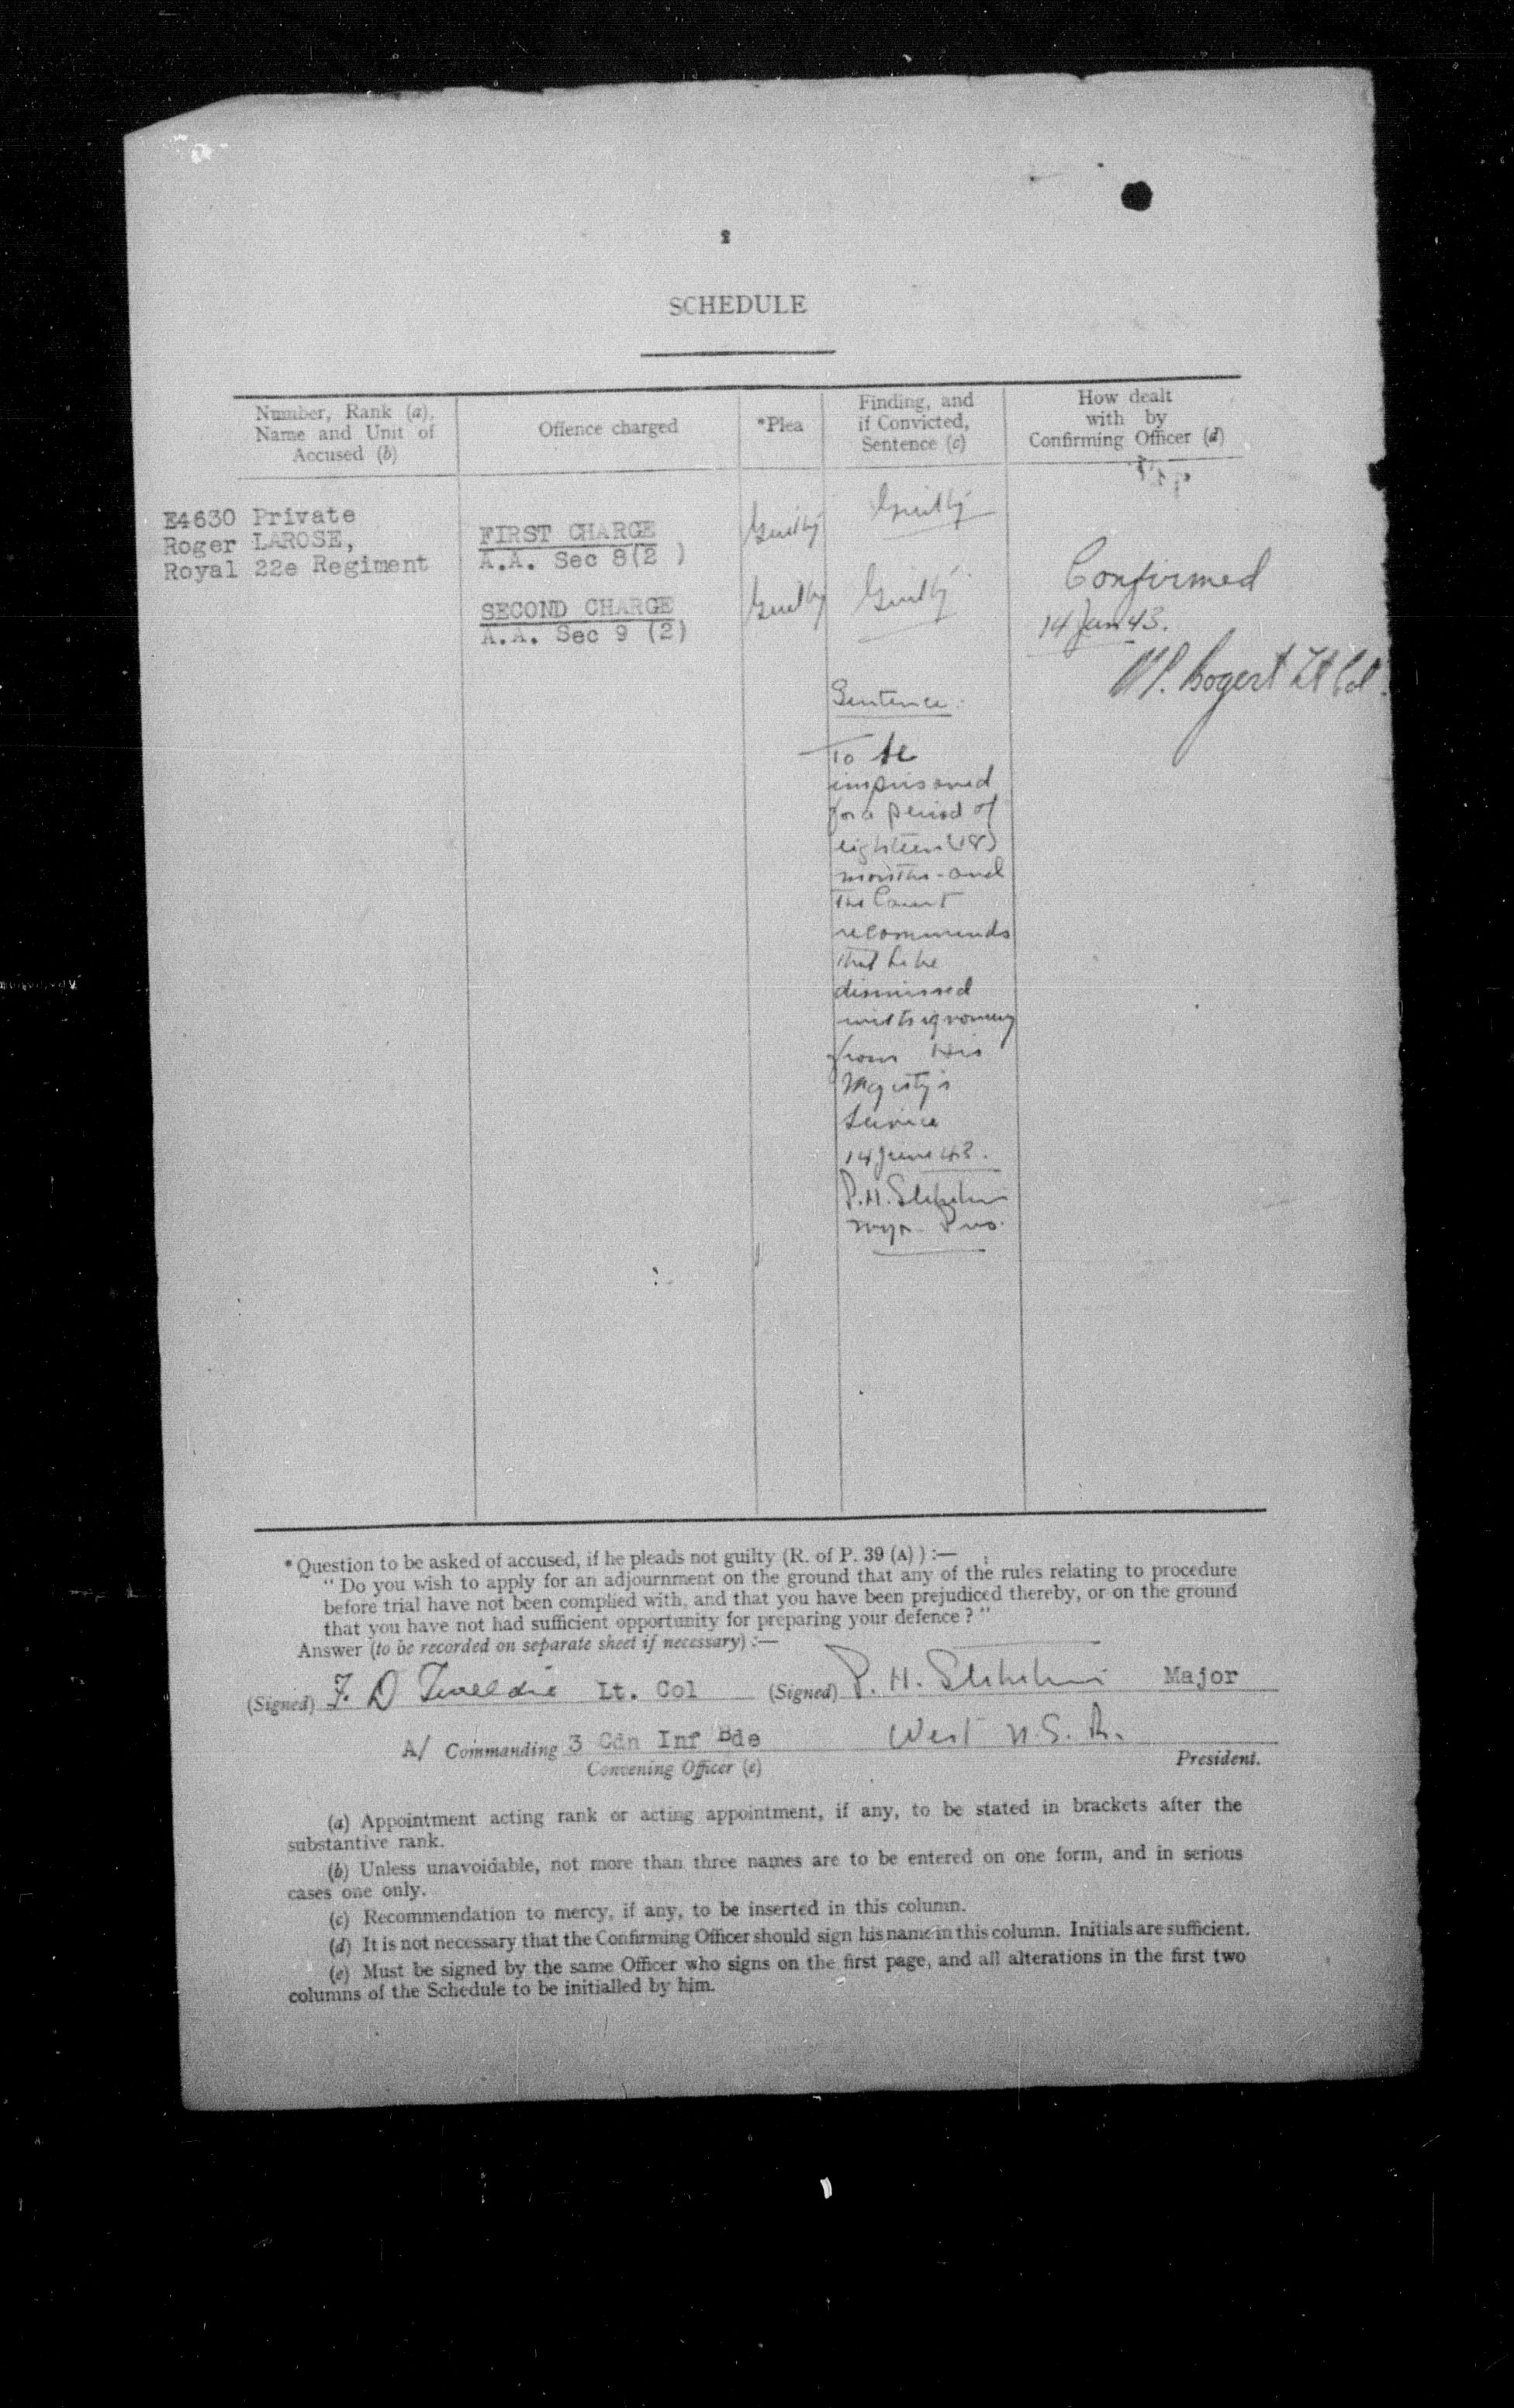 2
SCHEDULE
Number, Rank (a),
Name and Unit of
Accused (b)
Offence charged
*Plea
Finding, and
if Convicted,
Sentence (c)
How dealt
with by
Confirming Officer (d)
E4630 Private
Roger LAROSE,
Royal 22e Regiment
FIRST CHARGE
A.A. Sec 8(2 )
Guilty
Guilty
SECOND CHARGE
A.A. Sec 9 (2)
Guilty
Guilty
Confirmed
14 Jun 43.
Bogert Lt Col.
Sentence.
To be
imprisoned
for a period of
eighteen (18)
months - and
the Court
recommends
that he be
dismissed
with ignominy
from His
Majesty's
Service
14 June 43.
P.H.
Major Pres.
* Question to be asked of accused, if he pleads not guilty (R. of P. 39 (A) ) :—
" Do you wish to apply for an adjournment on the ground that any of the rules relating to procedure
before trial have not been complied with, and that you have been prejudiced thereby, or on the ground
that you have not had sufficient opportunity for preparing your defence ? "
Answer (to be recorded on separate sheet if necessary) :—
(Signed) F. D Tweedie Lt. Col
(Signed) P. H. Major
A/ Commanding 3 Cdn Inf Bde
West N.S.R.
Convening Officer (e)
President.
(a) Appointment acting rank or acting appointment, if any, to be stated in brackets after the
substantive rank.
(b) Unless unavoidable, not more than three names are to be entered on one form, and in serious
cases one only.
(c) Recommendation to mercy, if any, to be inserted in this column.
(d) It is not necessary that the Confirming Officer should sign his name in this column. Initials are sufficient.
(e) Must be signed by the same Officer who signs on the first page, and all alterations in the first two
columns of the Schedule to be initialled by him.